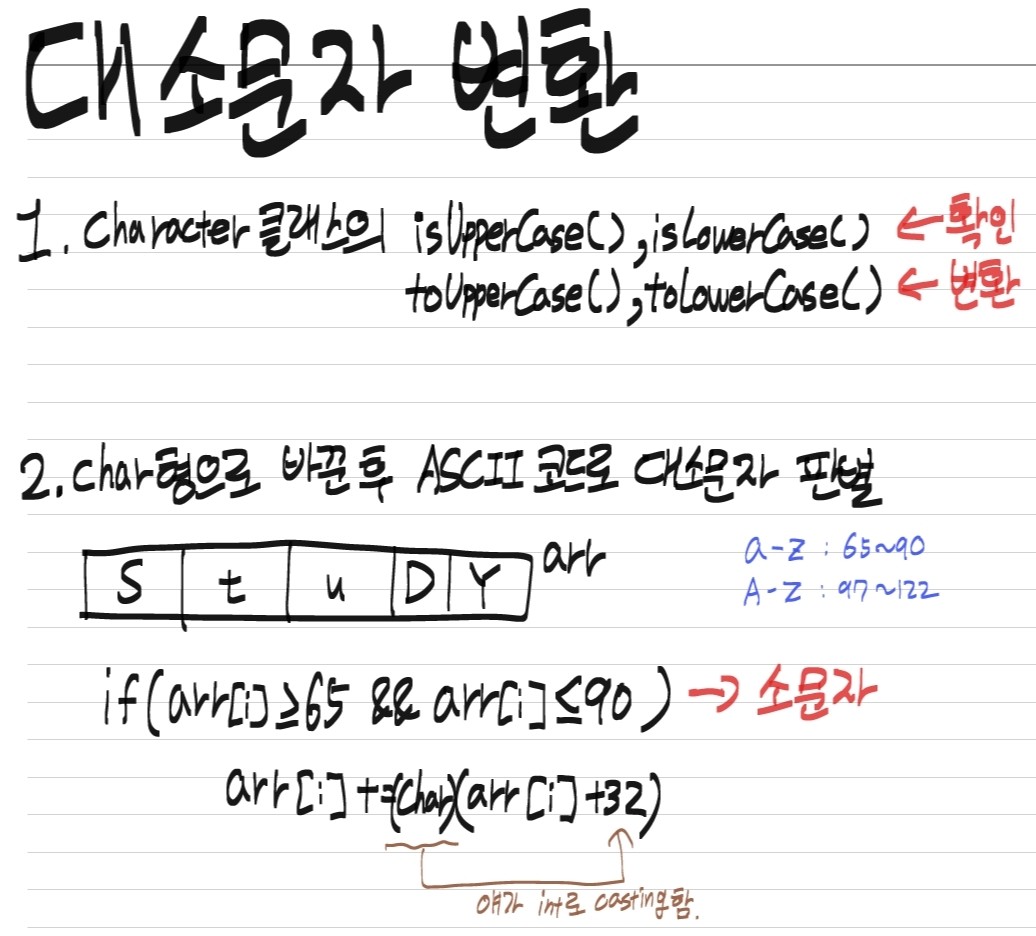 대소문자 변환
1. Character 클래스의 isUpperCase(), isLowerCase() ← 확인
toUpperCase(), toLowerCase() ← 변환
2. char형으로 바꾼 후 ASCII 코드로 대소문자 판별
S t u D Y arr
a-z : 65~90
A-Z : 97~122
if(arr[i]≥65 && arr[i]≤90) → 소문자
arr[i] +=(char)(arr[i]+32)
얘가 int로 casting함.